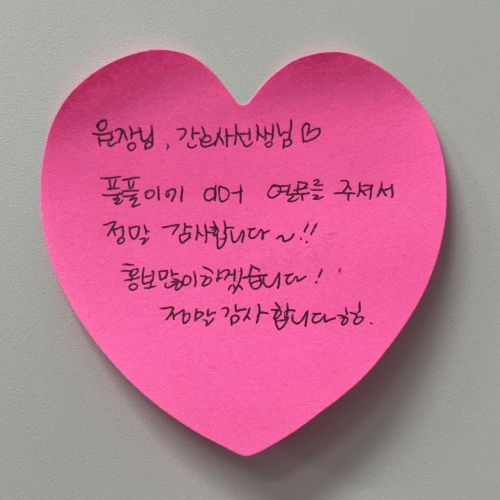 원장님, 간호사선생님♡
플플이기 이어 열무를 주셔서
정말 감사합니다~!!
홍보많이하겠습니다!
정말감사합니다힝.